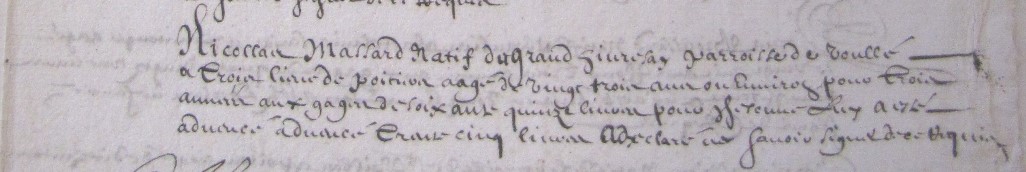 Nicollas Massard Natif du grand parroisse de voullé
a trois lieue de poitiers aagé de vingt trois ans ou Environ pour trois
années aux gages de soixante quinze livres pour luy a esté
advancé advancé trante cinq livres declaré ne savoir signer de ce Requis